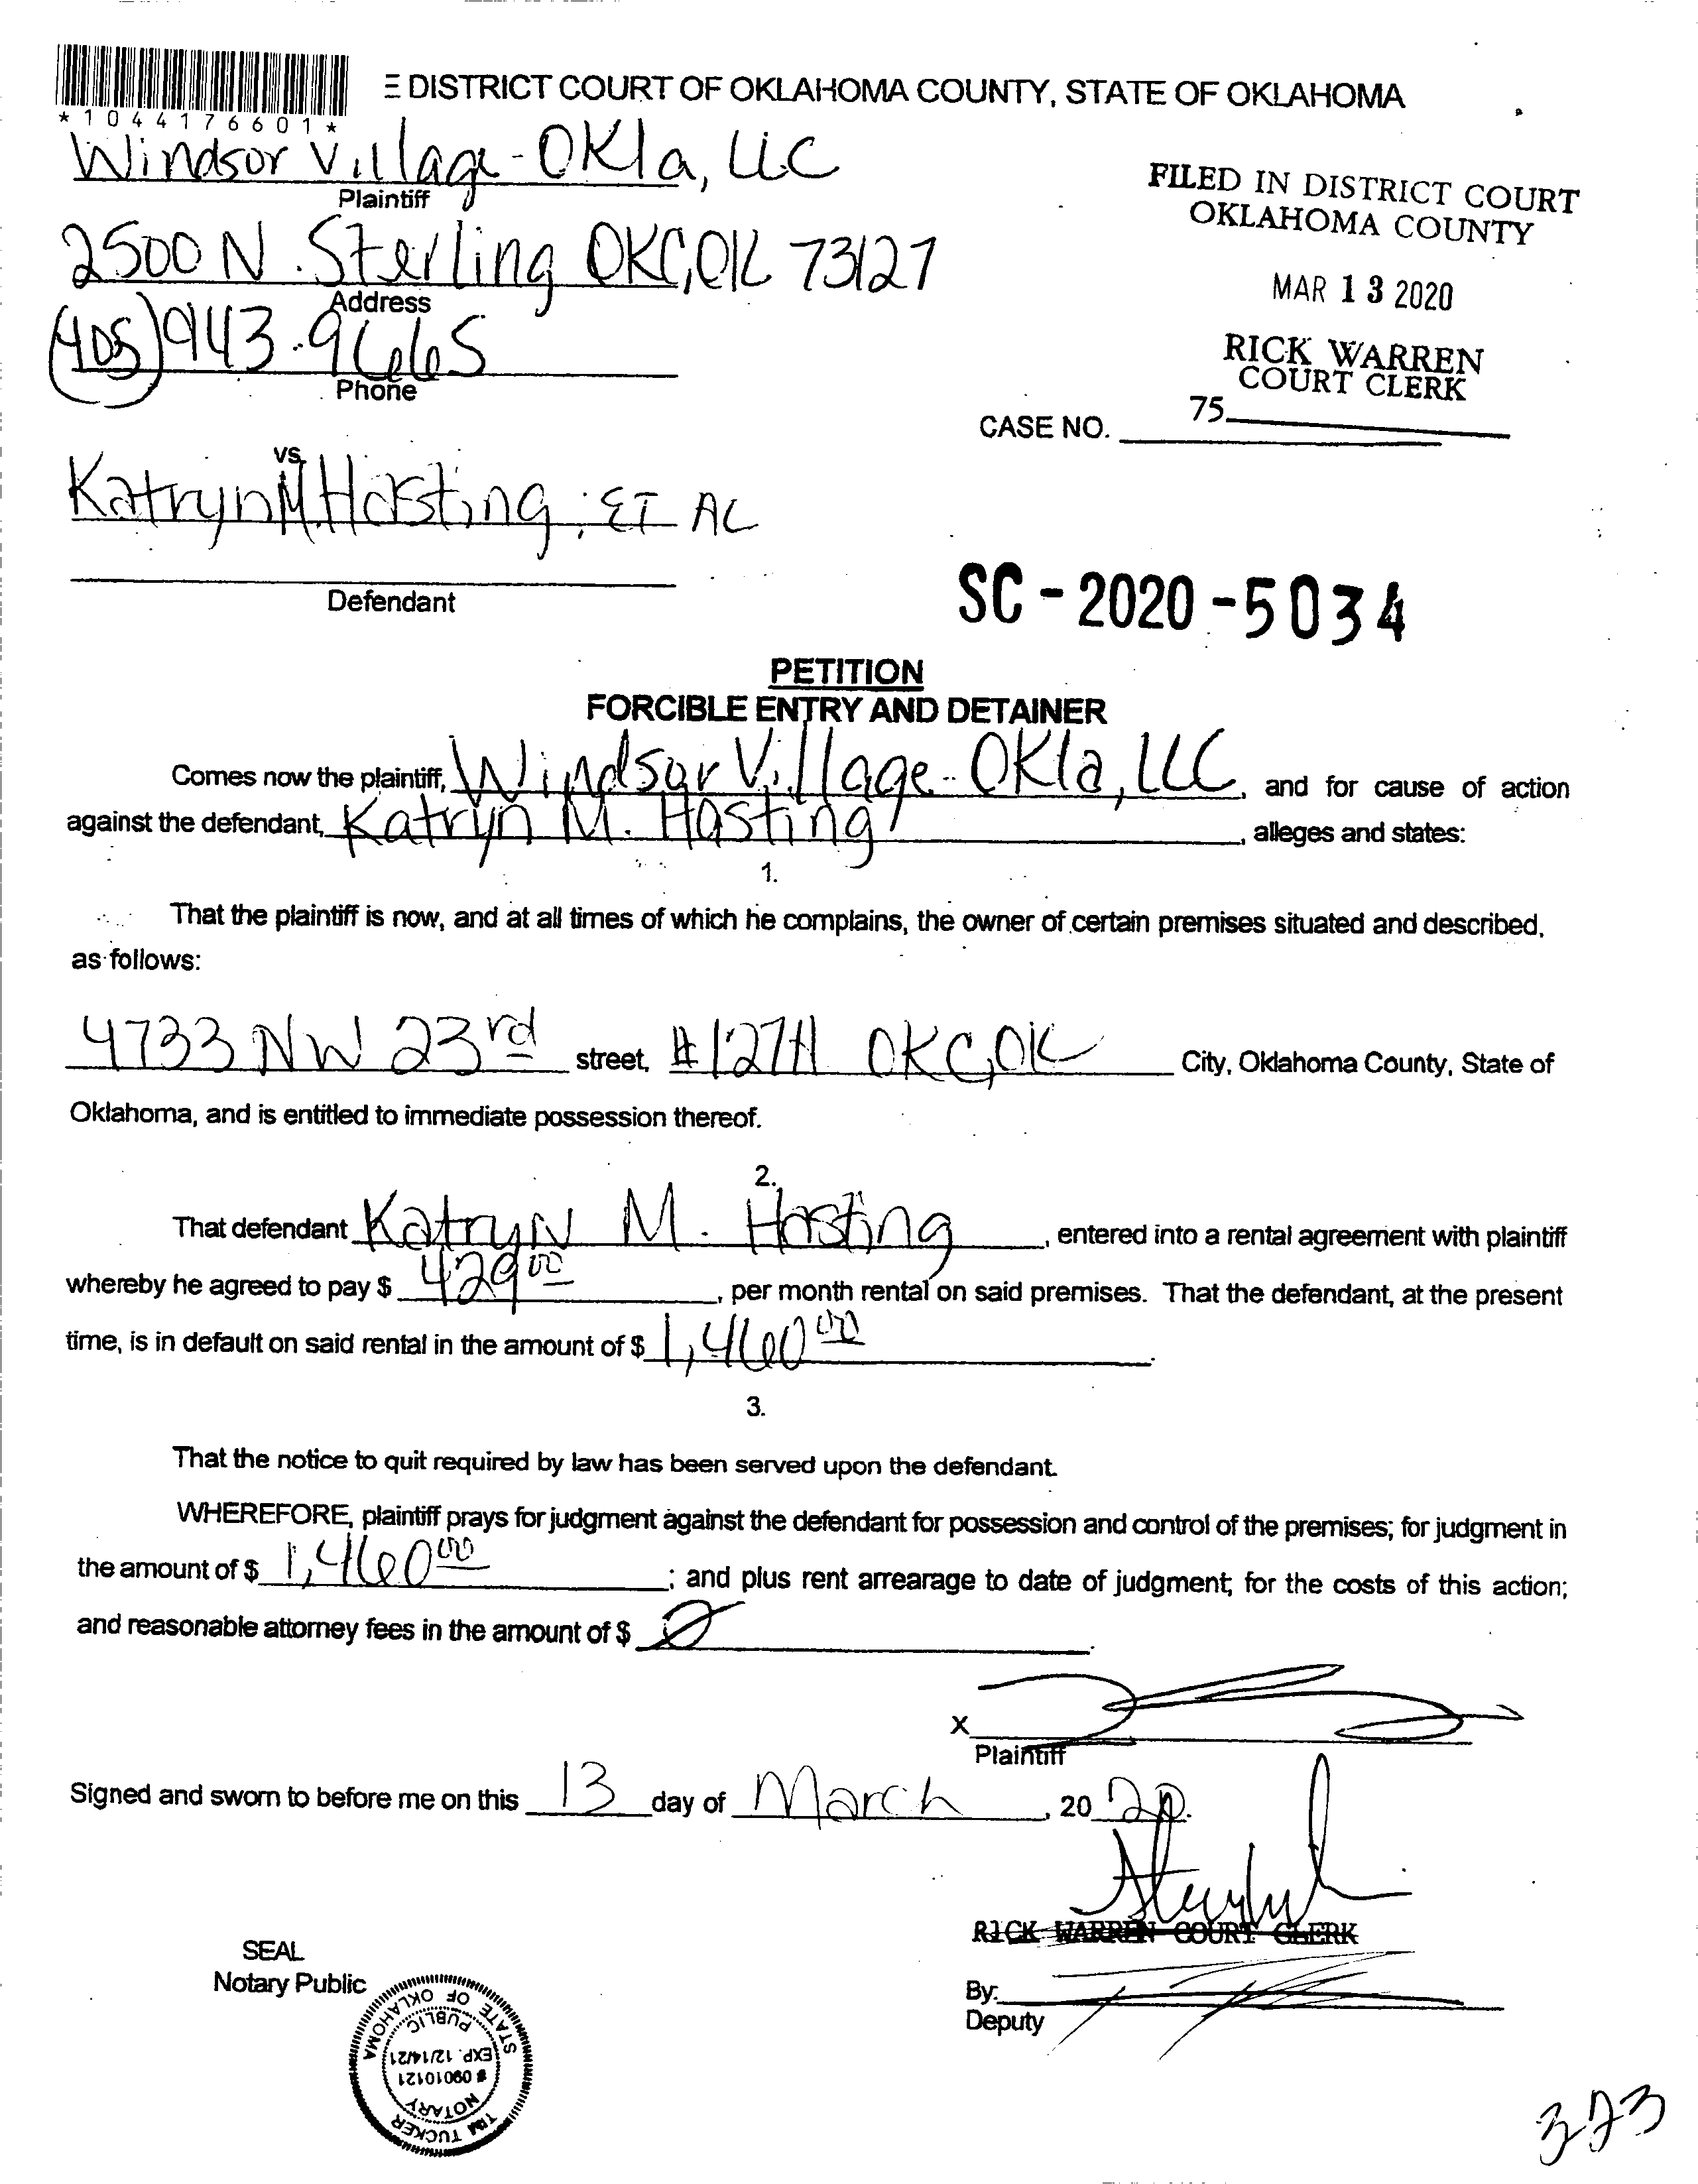 E DISTRICT COURT OF OKLAHOMA COUNTY, STATE OF OKLAHOMA
* 1 0 4 4 1 7 6 6 0 1 *
Windsor Village - Okla, LLC
Plaintiff
2500 N. Sterling OKC, OK 73127
Address
(405) 943-9665
Phone
FILED IN DISTRICT COURT
OKLAHOMA COUNTY
MAR 13 2020
RICK WARREN
COURT CLERK
75
CASE NO.
vs.
Katryn M Hasting; ET AL
Defendant
SC - 2020 - 5034
PETITION
FORCIBLE ENTRY AND DETAINER
Comes now the plaintiff, Windsor Village - Okla, LLC, and for cause of action
against the defendant, Katryn M. Hasting, alleges and states:
1.
That the plaintiff is now, and at all times of which he complains, the owner of certain premises situated and described,
as follows:
4733 NW 23rd street, #127H OKC, OK City, Oklahoma County, State of
Oklahoma, and is entitled to immediate possession thereof.
2.
That defendant Katryn M. Hasting, entered into a rental agreement with plaintiff
whereby he agreed to pay $ 429 00, per month rental on said premises. That the defendant, at the present
time, is in default on said rental in the amount of $ 1,460 00.
3.
That the notice to quit required by law has been served upon the defendant.
WHEREFORE, plaintiff prays for judgment against the defendant for possession and control of the premises; for judgment in
the amount of $ 1,460 00; and plus rent arrearage to date of judgment; for the costs of this action;
and reasonable attorney fees in the amount of $ 0.
X
Plaintiff
Signed and sworn to before me on this 13 day of March, 20 20.
RICK WARREN COURT CLERK
SEAL
Notary Public
By:
Deputy
STATE OF OKLAHOMA
PUBLIC
EXP. 12/14/21
# 09010121
NOTARY
TIM TUCKER
323